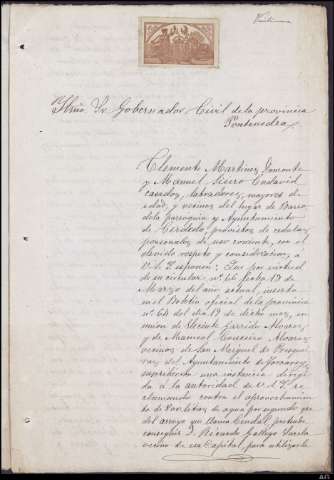 Ilmo Sr Gobernador Civil de la provincia
Pontevedra
Clemente Martinez
y Manuel
casados, labradores, mayores de
edad, y vecinos del lugar de Barro
de la parroquia y Ayuntamiento
de Cerdedo, provistos de cedulas
personales de uso corriente, con el
debido respeto y consideracion, á
V.S.I. exponen: Que por virtud
de su circular nº 44 fecha 17 de
Marzo del año actual, inserta
en el Boletin oficial de la provincia
nº 64 del dia 19 de dicho mes, en
union de Vicente Garrido Alvarez
y de Manuel Alvarez,
vecinos de San Miguel de
del Ayuntamiento de Forcarey
una instancia dirigi
da á la autoridad de V.S.I. re
clamando contra el aprovechamien
to de litros de agua por segundo que
del arroyo que llama pretende
conseguir D. Ricardo Gallego Varela
vecino de esa Capital, para utilizarla